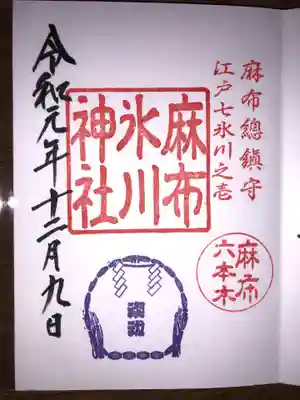 麻布總鎮守
江戸七氷川之壱
麻布
氷川
神社
麻布
六本木
令和元年十二月九日